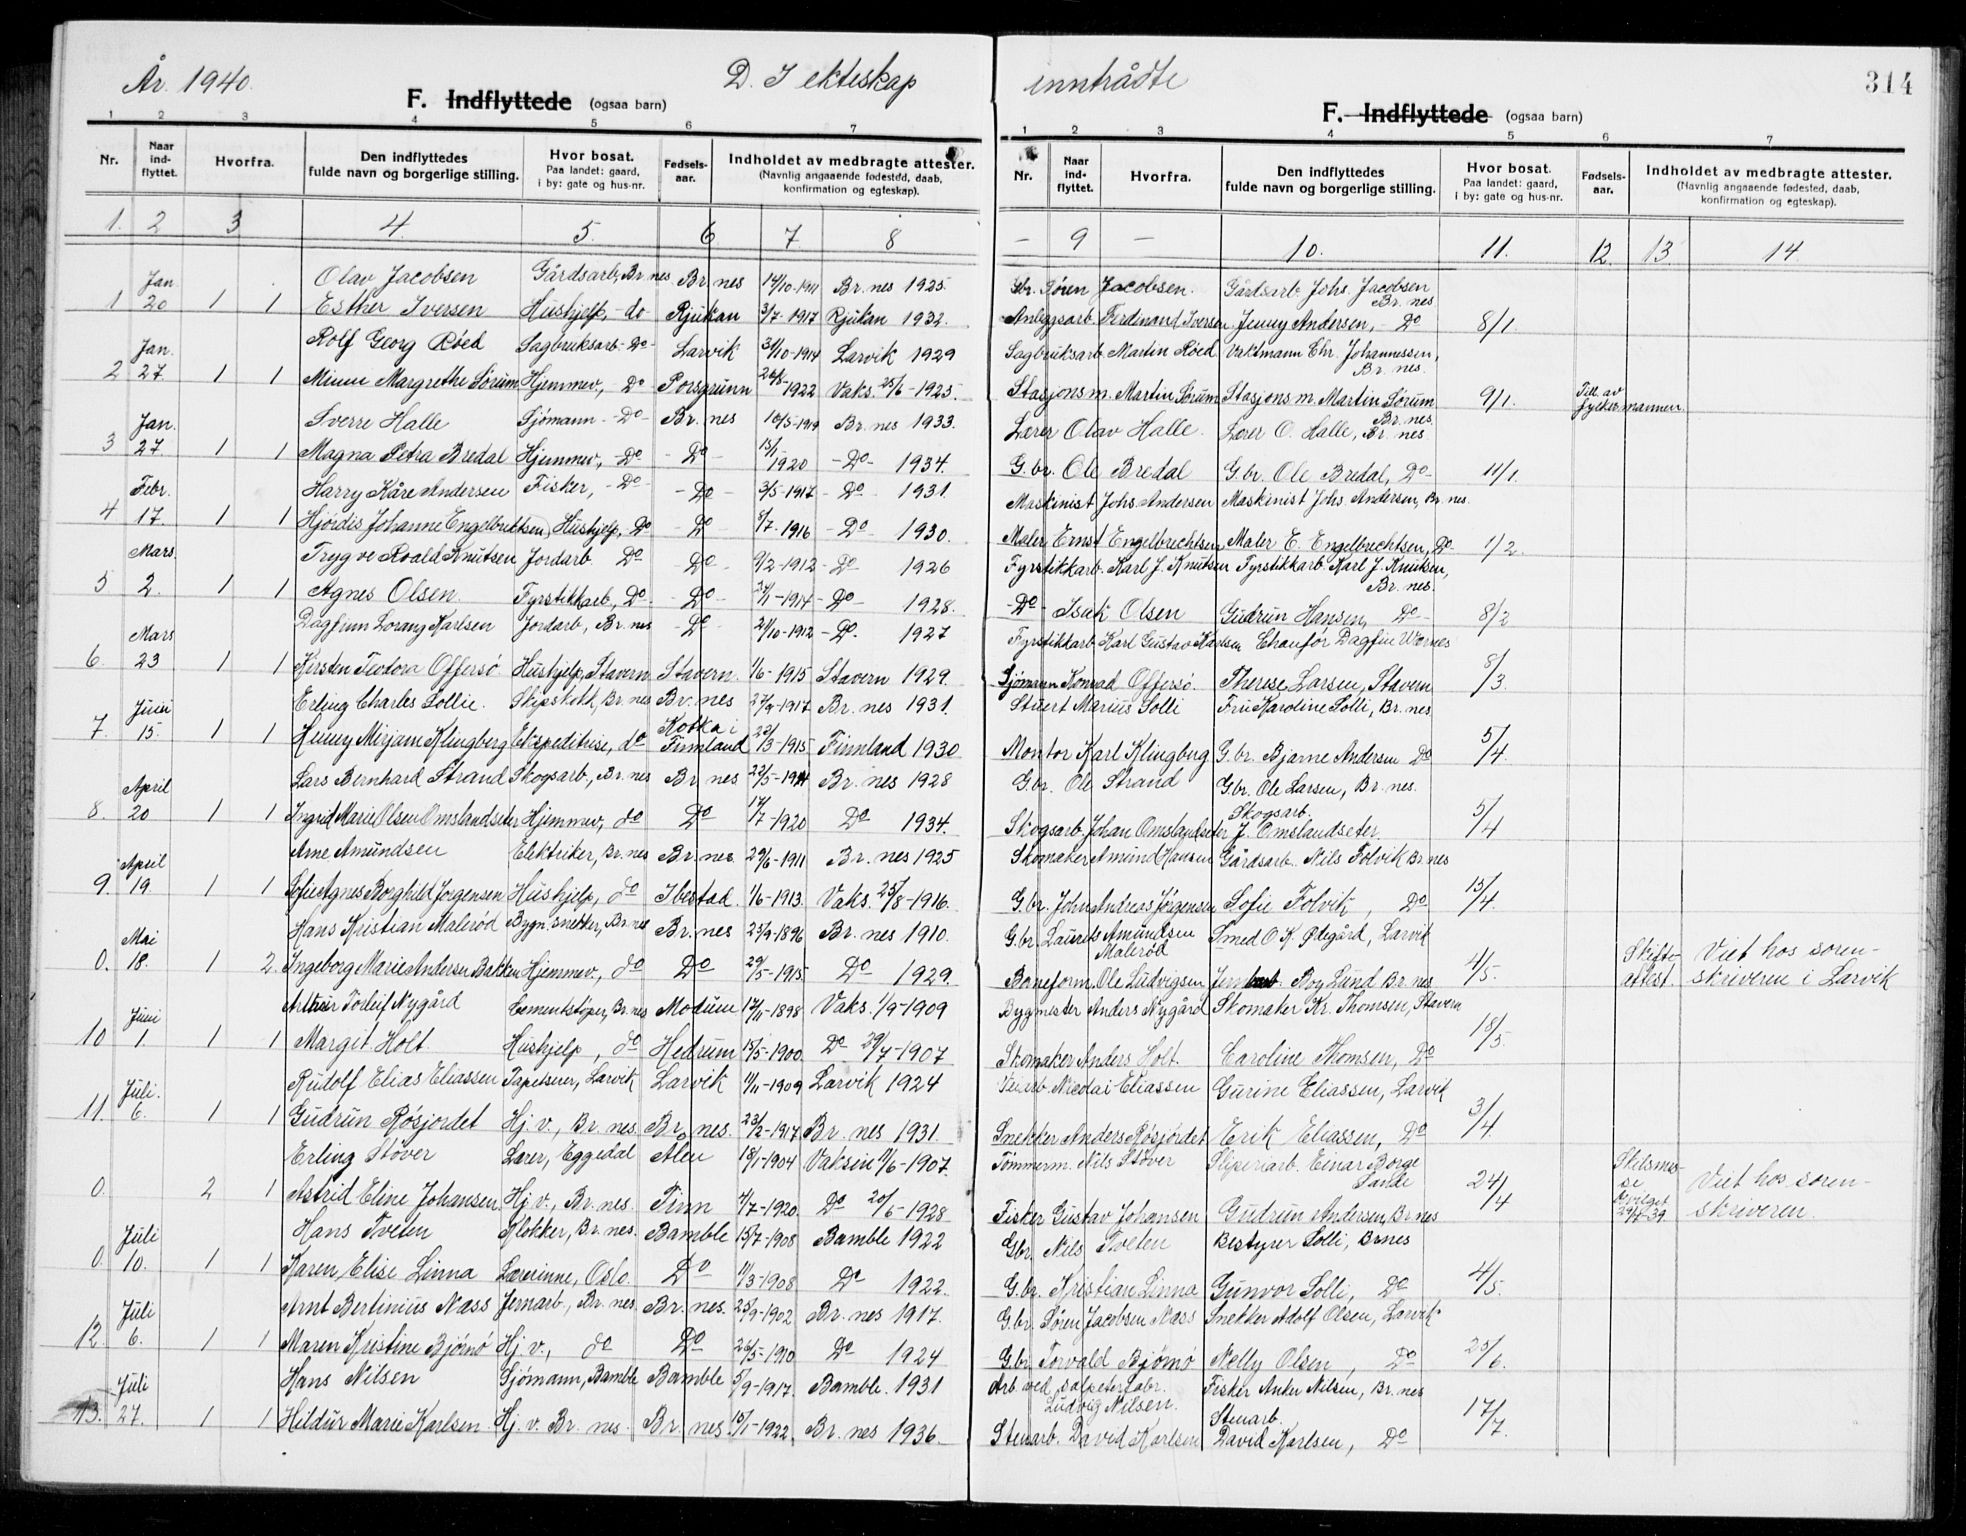 År 1940.
D. I ekteskap inntrådte
314
F. Indflyttede (ogsaa barn)
F. Indflyttede (ogsaa barn)
1 2 3 4 5 6 7
1 2 3 4 5 6 7
Nr. Naar ind-flyttet. Hvorfra. Den indflyttedes fulde navn og borgerlige stilling. Hvor bosat. Paa landet: gaard, i by: gate og hus-nr. Fødsels-aar. Indholdet av medbragte attester. (Navnlig angaaende fødested, daab, konfirmation og egteskap).
Nr. Naar ind-flyttet. Hvorfra. Den indflyttedes fulde navn og borgerlige stilling. Hvor bosat. Paa landet: gaard, i by: gate og hus-nr. Fødsels-aar. Indholdet av medbragte attester. (Navnlig angaaende fødested, daab, konfirmation og egteskap).
1. 2 3 4. 5. 6 7 8 – 9 – 10. 11. 12. 13 14
Jan. Olav Jacobsen Gårdsarb, Br.nes Br. nes 14/10-1911 Br. nes 1925. Gbr. Søren Jacobsen. Gårdsarb. Johs. Jacobsen Br. nes
1 20 1 1 Esther Iversen Hushjelp, - do Rjukan 3/7-1917 Rjukan 1932. Anleggsarb. Ferdinand Iversen Jenny Andersen, - Do 8/1.
Jan. Rolf Georg Røed Sagbruksarb - Do - Larvik 31/10-1914 Larvik 1929 Sagbruksarb. Martin Røed Vaktmann Chr. Johannessen, Br. nes.
2 27 1 1 Margrethe Sørum Hjemmev, - Do Porsgrunn -1922 Vaks. 25/6-1925. Stasjons m. Martin Sørum Stasjons m. Martin Sørum Br. nes. 9/1. Till. av fylkesmannen.
Jan. Sverre Halle Sjömann - Do - Br. nes 10/5-1919 Br. nes 1933. Lærer Olav Halle. Lærer O. Halle, Br. nes.
3 27 1 1 Magna Petra Bredal Hjemmev, - Do - Do 15/1 1920 - Do - 1934. G. br. Ole Bredal G. br. Ole Bredal, Do - 11/1
Febr. Harry Kåre Andersen Fisker, - Do - - Do - 3/5-1917 - Do - 1931. Maskinist Johs. Andersen Maskinist Johs. Andersen, Br. nes.
4 17. 1 1 Hjördis Johanne Engelbrektsen, Hushjelp, Do Do 7-1916 - Do - 1930. Maler Ernst Engelbrechtsen Maler E. Engelbrechtsen, Do 1/2.
Mars. Trygve Roald Knutsen Jordarb. Do Do - 9/2-1912 - Do 1926 Fyrstikkarb. Karl J. Knutsen Fyrstikkarb Karl J. Knutsen, Br. nes.
5 2. 1 1 Agnes Olsen. Fyrstikkarb, Do - Do - /11-1914 - Do - 1928. - Do - Isak Olsen Gudrun Hansen, Do - 8/2
Mars Dagfinn Lorang Karlsen Jordarb, Br. nes - Do - 21/10-1912 - Do - 1927 Fyrstikkarb Karl Gustav Karlsen Chauför Dagfin Wernes
6. 23 1 1 Kirsten Teodora Offersö Hushjelp, Stavern. Stavern. 1/6-1915 Stavern 1929. Sjömann Konrad Offersö. Therese Larsen, Stavern 8/3
Juni Erling Charles Sollie. Br. nes Br. nes 27/9-1917 Br. nes 1931. Stuert Marius Solli Fru Karoline Solli, Br. nes.
7. 15. 1 1 Mirjam Klingberg Ekspeditrise, do Kotka i Finnland 23/3-1915 Finnland 1930 Montør Karl Klingberg G. br. Bjarne Andersen Do 5/4.
April Lars Bernhard Strand Skogsarb., Br. nes Br. nes 22/5-1914 Br. nes 1928 G. br. Ole Strand G. br. Ole Larsen, Br. nes.
8. 20 1 1 Ingrid Marie Olsen Omslandseter Hjemmev, do Do 17/7-1920 Do 1934. Skogsarb. Johan Omslandseter Skogsarb. J. Omslandseter. 5/4
April Arne Amundsen Elektriker, Br. nes Br. nes. 29/6-1911 Br. nes 1925 Skomaker Amund Hansen Gårdsarb. Nils Folvik Br. nes
9. 19. 1 1 Sofie Agnes Borghild Jørgensen Hushjelp, do Ibestad. 1/6-1913. Vaks. 25/8-1916. G. br. Johan Andreas Jørgensen Sofie Folvik, Do 15/4.
Mai Hans Kristian Malerød Bygn. snekker, Br. nes Br. nes 23/9-1896 Br. nes 1910. G. br. Laurits Amundsen Malerød Smed O K Ødegård, Larvik
0. 18. 1 2. Ingeborg Marie Andersen Bakken Hjemmev, do Do 29/5-1915 Do 1929. Baneform. Ole Ludvigsen Jernbarb. Boy Lund Br. nes 4/5. Skifte-attest. Viet hos soren-skriveren i Larvik
Juni Artur Torleif Nygård Cementstöper, Br. nes Modum 17/11-1898 Vaks. 1/9-1909 Bygmester Anders Nygård Skomaker Kr. Thomsen, Stavern
10 1 1 1 Marget Holt. Hushjelp, do Hedrum 15/5-1900. Do 29/7-1907 Skomaker Anders Holt. Caroline Thomsen, Do 18/5.
Juli. Rudolf Elias Eliassen Tapetserer, Larvik Larvik 11/11-1909 Larvik 1924 Nicolai Eliassen Gurine Eliassen, Larvik
11. 6. 1 1 Gudrun Røsjordet Hj. v., Br. nes. Br. nes. 23/2-1917 Br. nes 1931. Snekker Anders Røsjordet Erik Eliassen, Do 3/4.
Erling Stöver Lærer, Eggedal Ålen 18/1-1904 Vaksin 11/6-1907. Tømmerm. Nils Stöver Sliperiarb. Einar Borge Sande
0. 2 1 Astrid Eline Johansen Hj. v., Br. nes. Tinn 4/7-1920. Do 20/6-1928. Fisker Gustav Johansen Gudrun Andersen, Br. nes 24/4 Skilsmis-se bevilget -39. Viet hos soren-skriveren.
Juli Hans Tveten Klokker, Br. nes. Bamble 15/7-1908 Bamble 1922 Gbr. Nils Tveten Bestyrer Solli, Brnes
0. 10. 1 1 Karen Elise Linna Lærerinne, Oslo. Do 11/3-1908 Do 1922. G. br. Kristian Linna Gunvor Solli, Do 4/5.
Juli Arnt Bertinius Næss Jernarb., Br. nes. Br. nes. 25/9-1902 Br. nes 1917. G. br. Søren Jacobsen Næss Snekker Adolf Olsen, Larvik
12. 6. 1 1 Maren Kristine Bjønnø Hj. v., do Do 26/5-1910 Do 1924 G. br. Torvald Bjønnø Nelly Olsen, Do 25/6.
Juli Hans Nilsen Sjömann, Bamble Bamble 5/9-1917. Bamble. 1931 Arb. ved salpeterfabr. Ludvig Nilsen. Fisker Anker Nilsen, Br. nes
13. 27. 1 1 Hildur Marie Karlsen Hj. v. Br. nes. Br. nes. 15/1-1922, Br. nes 1936. Stenarb. David Karlsen Stenarb. David Karlsen, Do 17/7.